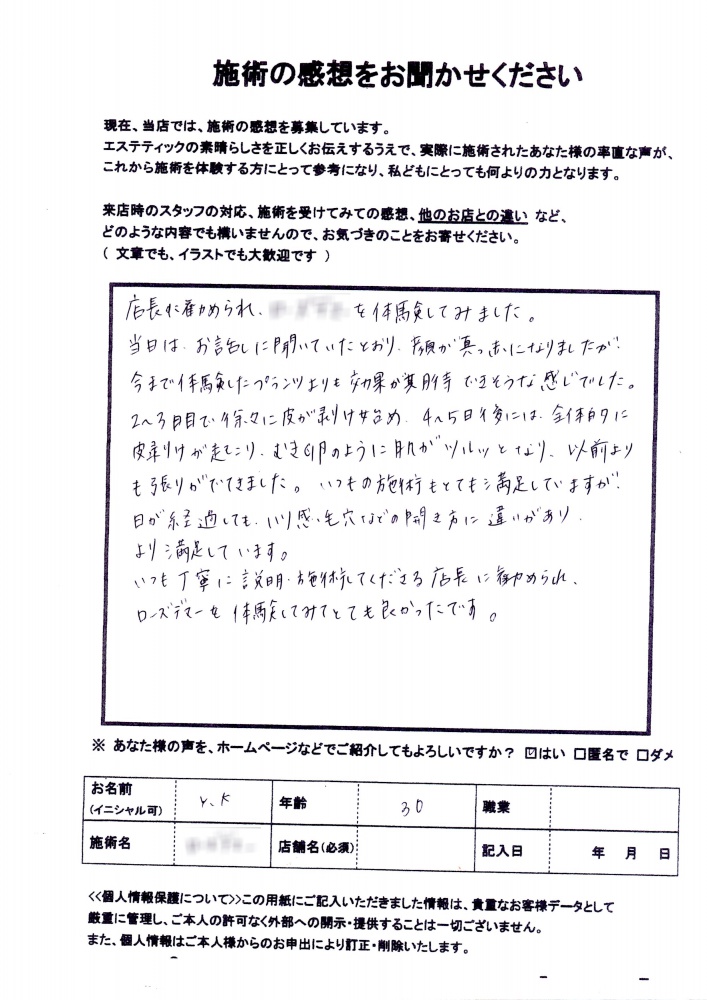 施術の感想をお聞かせください
現在、当店では、施術の感想を募集しています。
エステティックの素晴らしさを正しくお伝えするうえで、実際に施術されたあなた様の率直な声が、
これから施術を体験する方にとって参考になり、私どもにとっても何よりの力となります。
来店時のスタッフの対応、施術を受けてみての感想、他のお店との違い など、
どのような内容でも構いませんので、お気づきのことをお寄せください。
( 文章でも、イラストでも大歓迎です )
店長に勧められ、 を体験してみました。
当日は、お話しに聞いていたとおり、顔が真っ赤になりましたが、
今まで体験したプランツよりも効果が期待できそうな感じでした。
2〜3日目で徐々に皮が剥け始め、4〜5日後には、全体的に
皮剥けが起こり、むき卵のように肌がツルッとなり、以前より
も張りがでてきました。いつもの施術もとても満足していますが、
日が経過しても、ハリ感・毛穴などの開き方に違いがあり、
より満足しています。
いつも丁寧に説明・施術してくださる店長に勧められ、
ローズデマーを体験してみてとても良かったです。
※ あなた様の声を、ホームページなどでご紹介してもよろしいですか? ☑はい □匿名で □ダメ
お名前(イニシャル可) Y.K 年齢 30 職業
施術名 店舗名(必須) 記入日 年 月 日
<<個人情報保護について>>この用紙にご記入いただきました情報は、貴重なお客様データとして
厳重に管理し、ご本人の許可なく外部への開示・提供することは一切ございません。
また、個人情報はご本人様からのお申出により訂正・削除いたします。